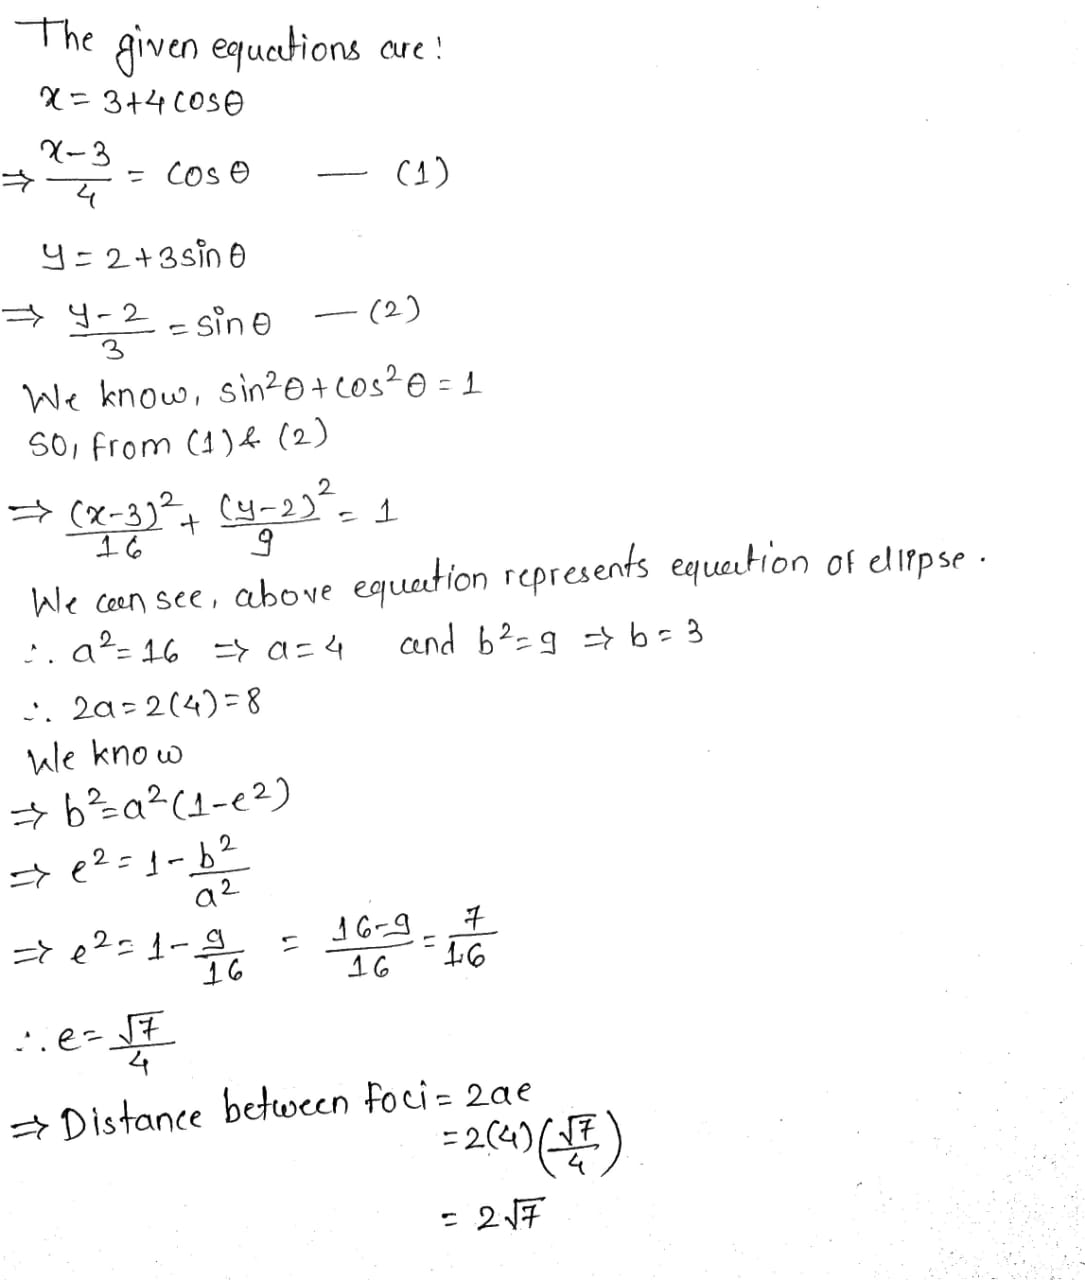 The given equations are!
x = 3+4 cosθ
⇒ (x-3)/4 = cos θ — (1)
y = 2+3 sin θ
⇒ (y-2)/3 = sin θ — (2)
We know, sin²θ + cos²θ = 1
SO, from (1) & (2)
⇒ (x-3)²/16 + (y-2)²/9 = 1
We can see, above equation represents equation of ellipse.
∴ a² = 16 ⇒ a = 4 and b² = 9 ⇒ b = 3
∴ 2a = 2(4) = 8
We know
⇒ b² = a²(1-e²)
⇒ e² = 1 - b²/a²
⇒ e² = 1 - 9/16 = (16-9)/16 = 7/16
∴ e = √7/4
⇒ Distance between foci = 2ae
= 2(4)(√7/4)
= 2√7